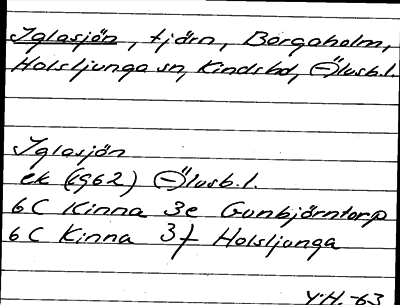 Iglasjön, tjärn, Borgaholm,
Holsljunga sn, Kinds hd, Älvsb.l.
Iglasjön
ek (1962) Älvsb.l.
6 C Kinna 3e Gunbjörntorp
6 C Kinna 3f Holsljunga
Y.H. -63